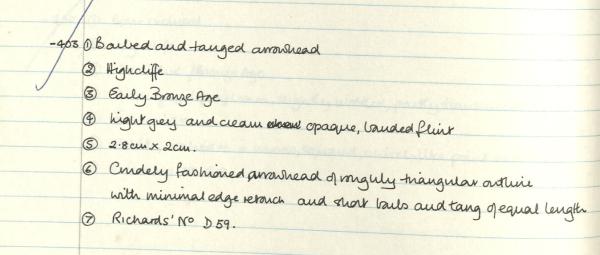 -403 ① Barbed and tanged arrowhead
② Highcliffe
③ Early Bronze Age
④ Light grey and cream opaque, banded flint
⑤ 2.8cm x 2cm.
⑥ Crudely fashioned arrowhead of roughly triangular outline
with minimal edge retouch and short barbs and tang of equal length
⑦ Richards' No D59.